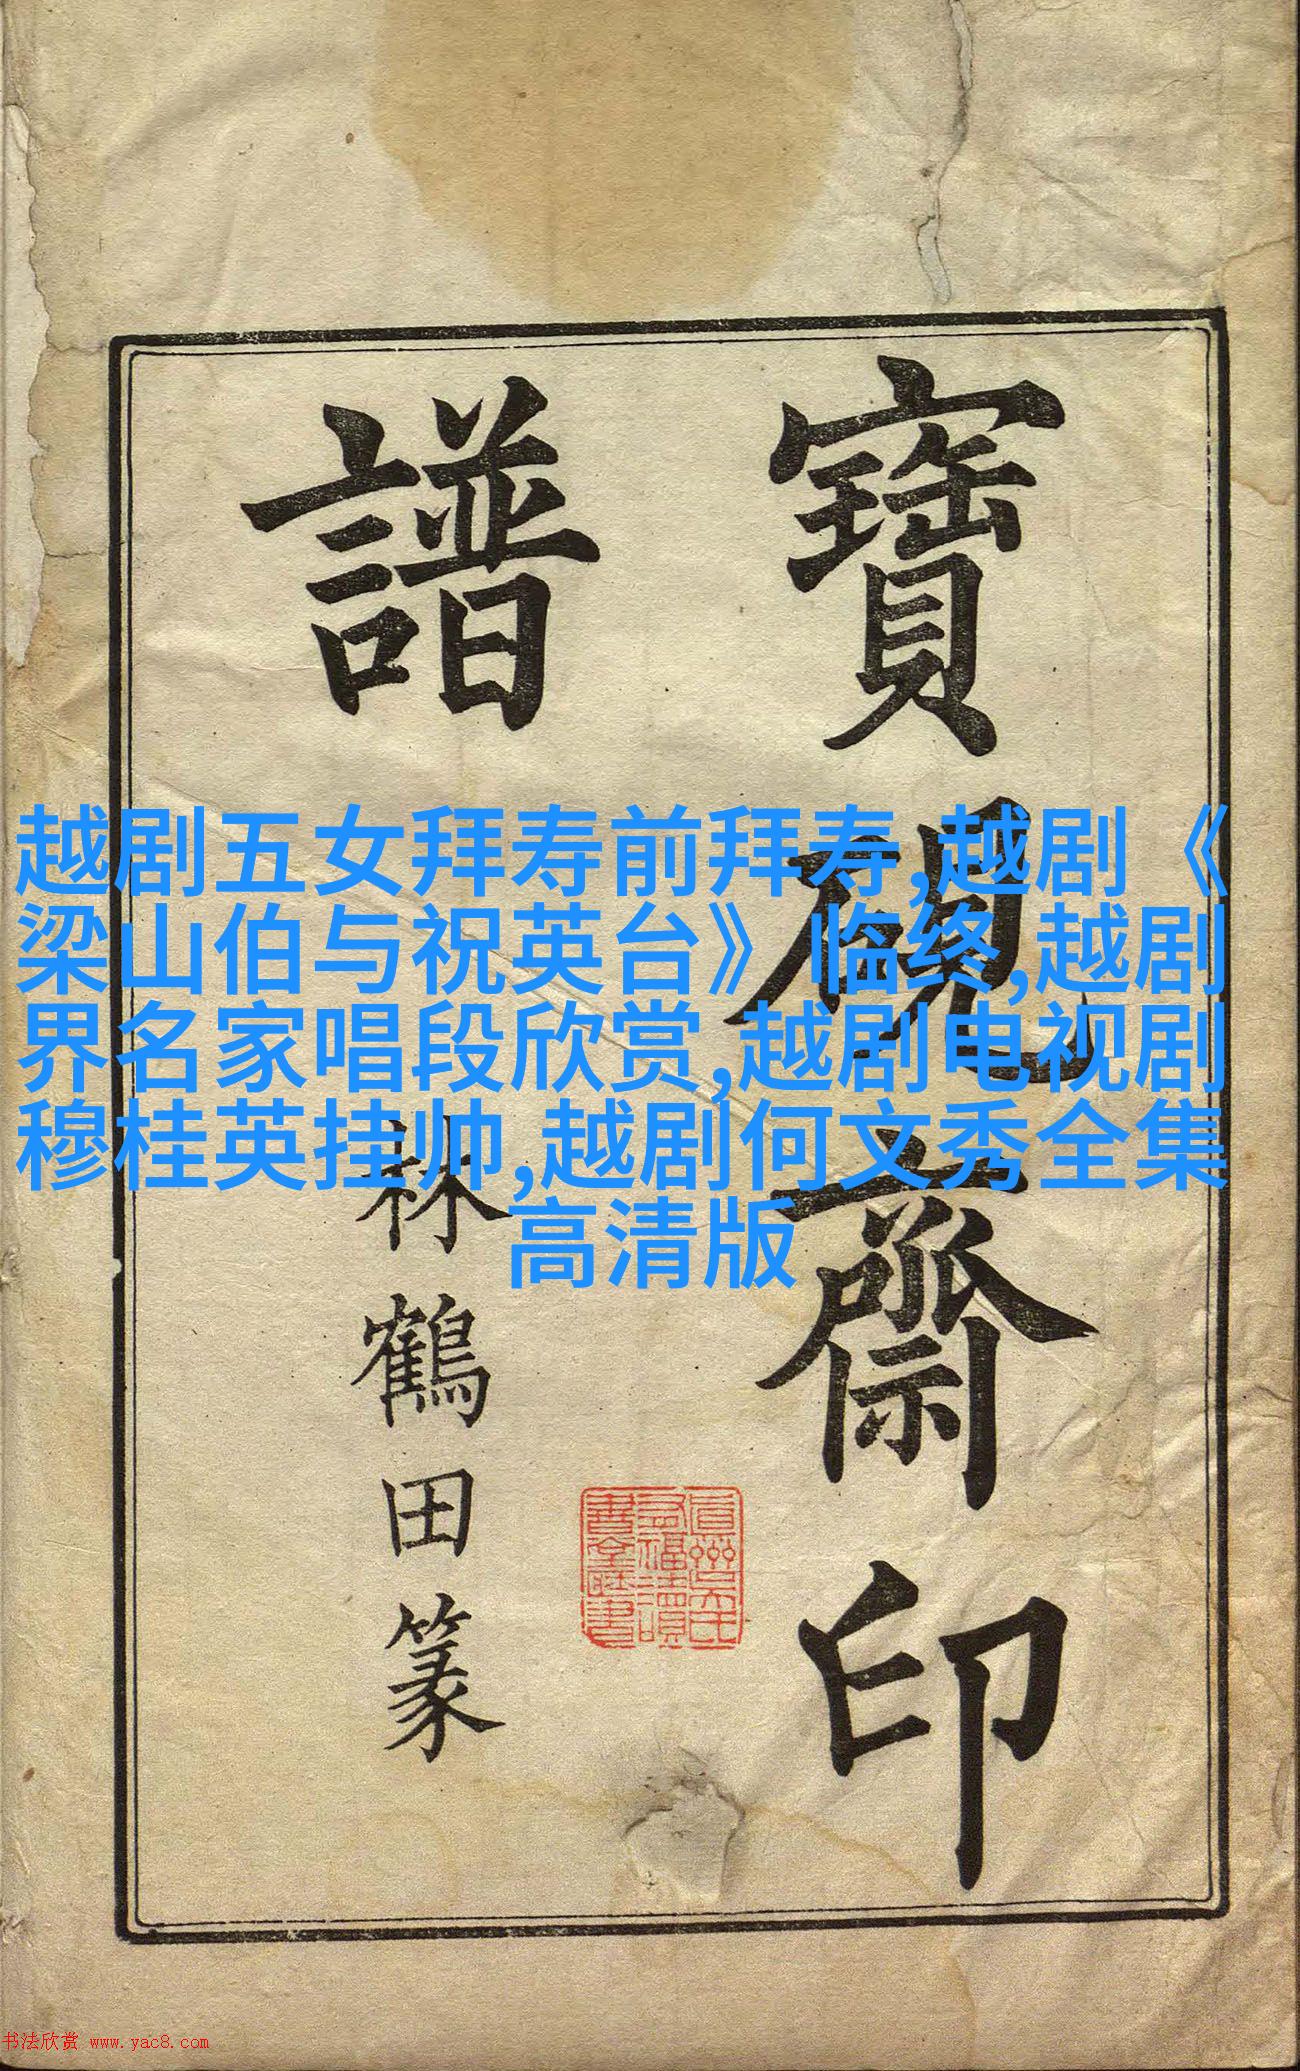 寶硯齋印
譜
林鶴田篆
真州吳氏
有福讀
書堂藏書
越剧五女拜寿前拜寿,越剧《
梁山伯与祝英台》临终,越剧
界名家唱段欣赏,越剧电视剧
穆桂英挂帅,越剧何文秀全集
高清版
书法欣赏 www.yac8.com